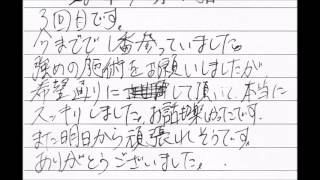 3回目です。
今までで1番参っていました。
強めの施術をお願いしましたが
希望通りにして頂いて、本当に
スッキリしました。お話も楽しかったです。
また明日から頑張れそうです。
ありがとうございました。